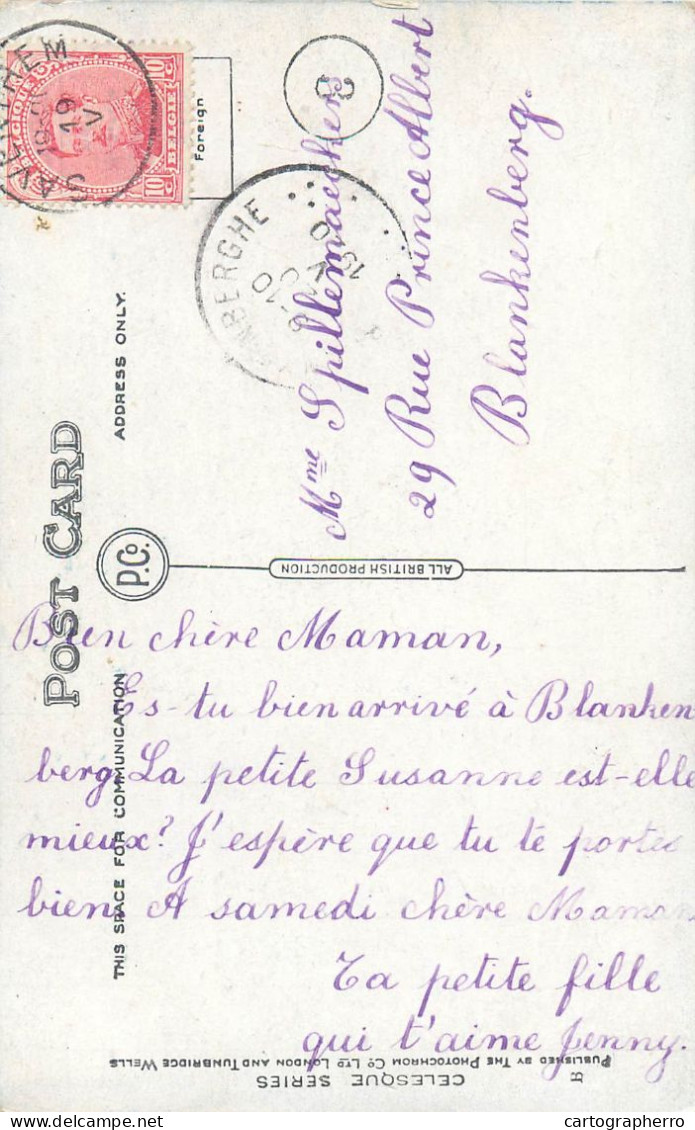 Bien chère Maman,
Es-tu bien arrivé à Blanken
berg. La petite Susanne est-elle
mieux? J'espère que tu te portes
bien. A samedi chère Maman
Ta petite fille
qui t'aime Jenny.
Mme Spillemaeckers
29 Rue Prince Albert
Blankenberg.
POST CARD
THIS SPACE FOR COMMUNICATION
ADDRESS ONLY.
P.Co.
ALL BRITISH PRODUCTION
Foreign
BELGIQUE
10c
BELGIË
10c
SAVENTHEM
19
V
NBERGHE
8-10
19 0
CELESQUE SERIES
PUBLISHED BY THE PHOTOCHROM CO LTD LONDON AND TUNBRIDGE WELLS
cartographerro